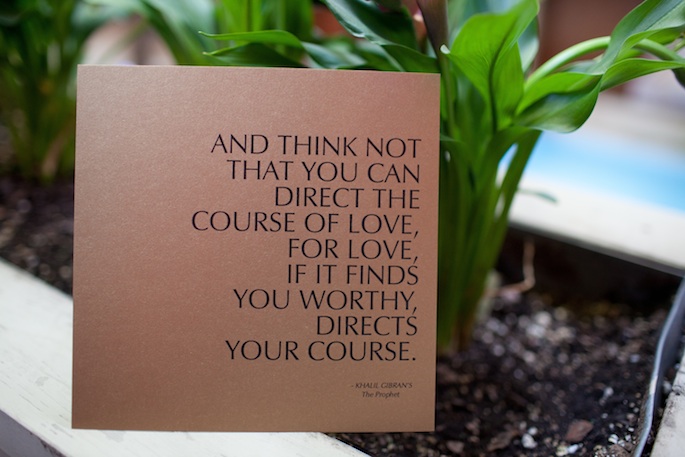 AND THINK NOT
THAT YOU CAN
DIRECT THE
COURSE OF LOVE,
FOR LOVE,
IF IT FINDS
YOU WORTHY,
DIRECTS
YOUR COURSE.
- KHALIL GIBRAN'S
The Prophet